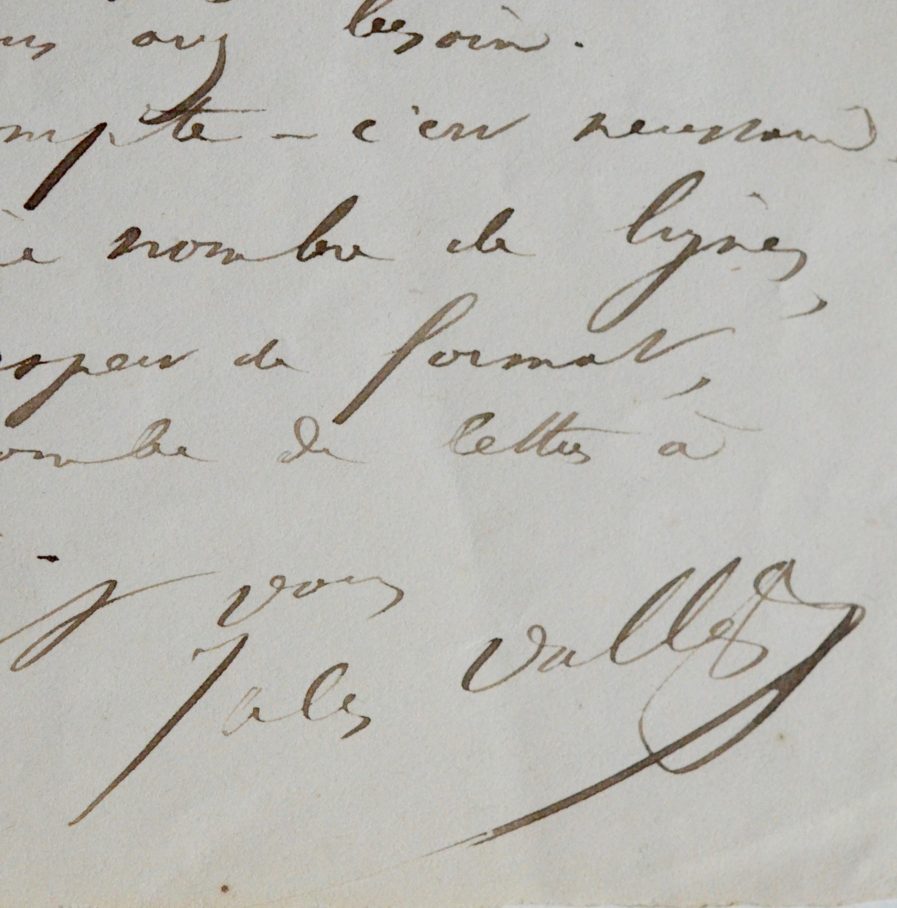 avez besoin.
compte – c'est nécessaire,
nombre de lignes,
de format,
nombre de lettres à
à vous
Jules Vallès